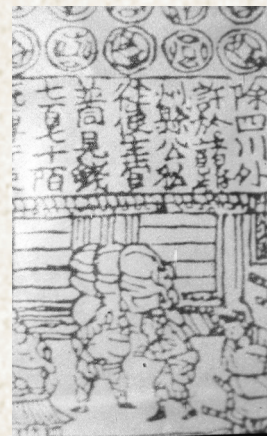 除四川外
許於諸路
州縣公私
從便主管
並同見錢
七百七十陌